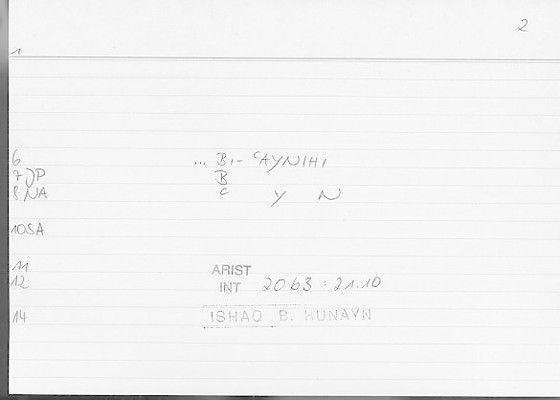 2
1
6 ... BI- ʿAYNIHI
7 JP B
8 NA ʿ Y N
10 SA
11 ARIST
12 INT 20b3 : 21.10
14 ISHAQ B. HUNAYN